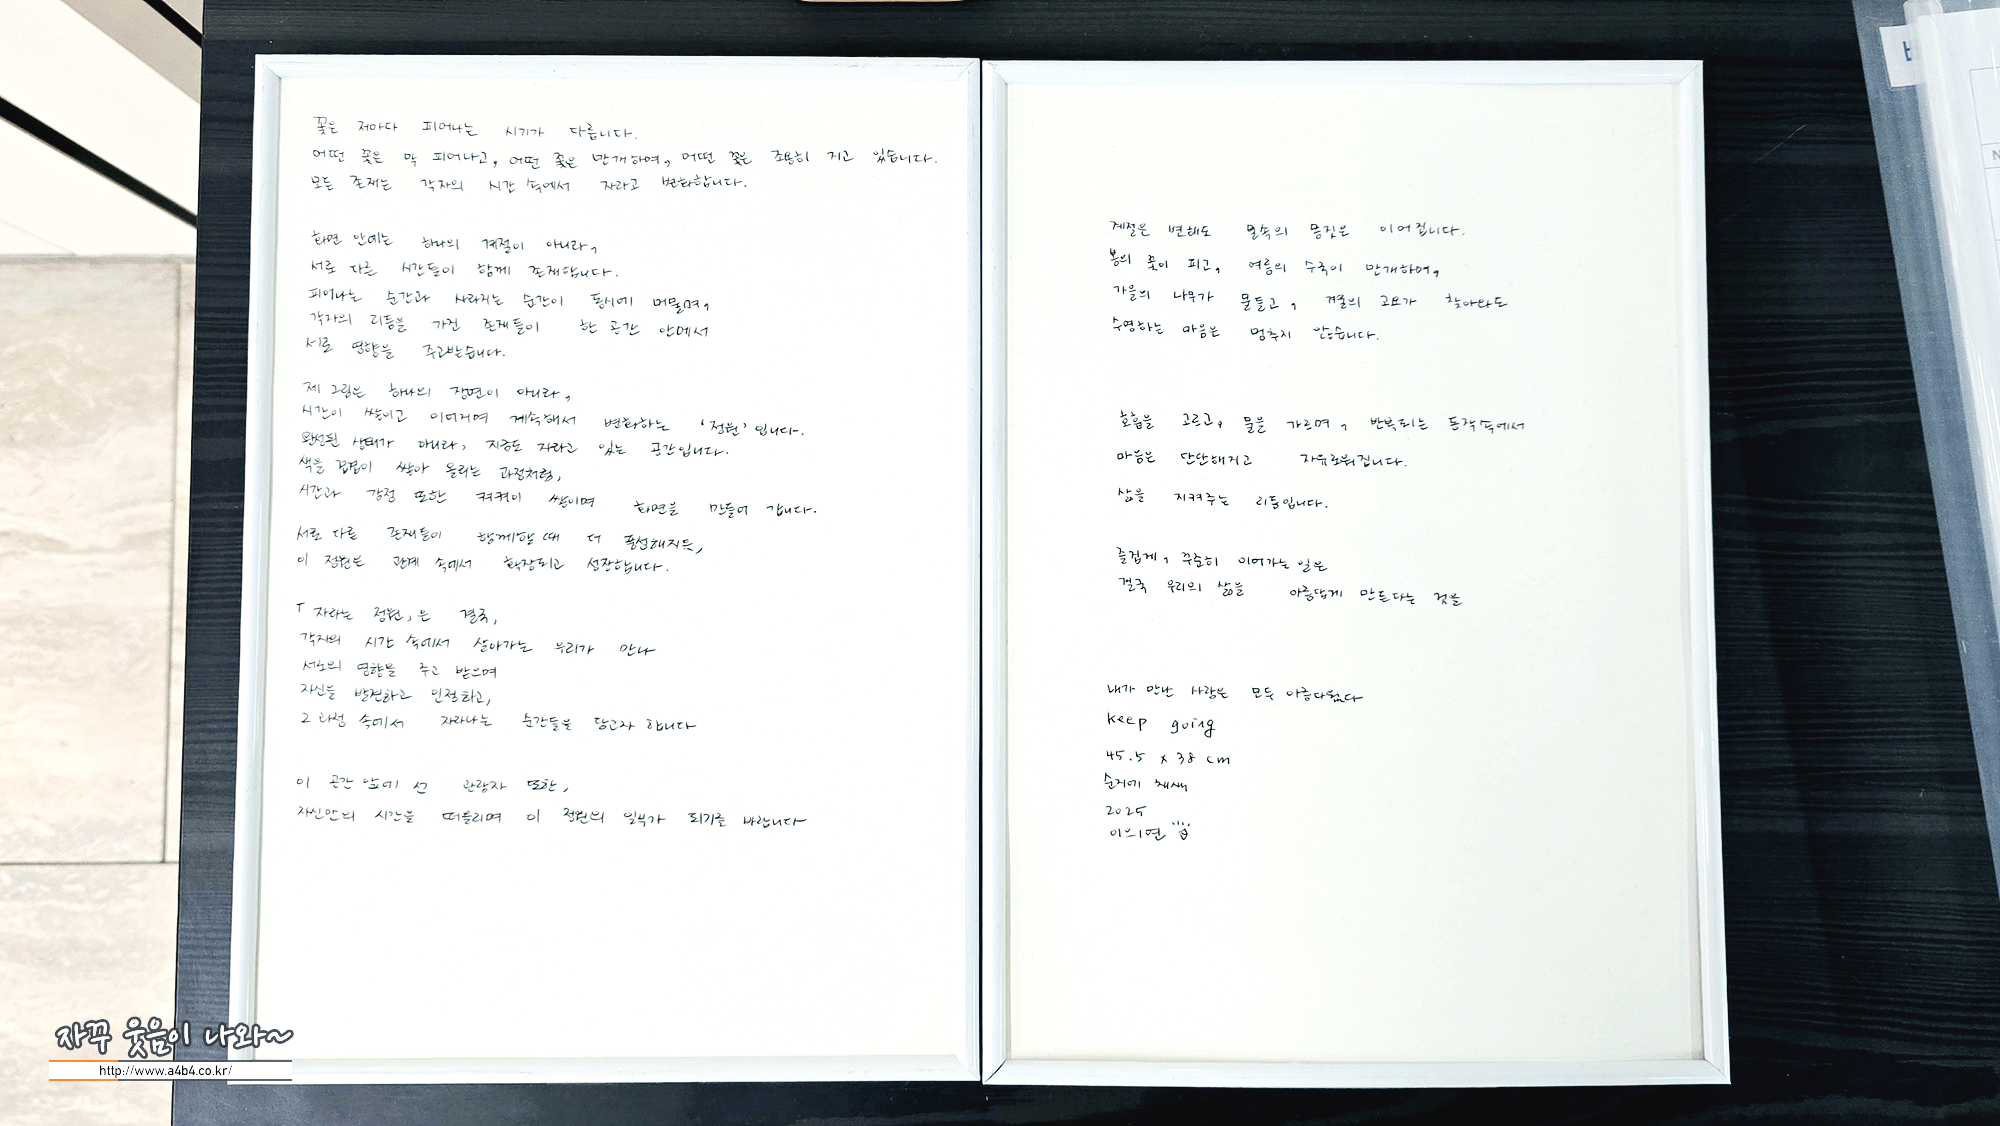 꽃은 저마다 피어나는 시기가 다릅니다.
어떤 꽃은 막 피어나고, 어떤 꽃은 만개하며, 어떤 꽃은 조용히 지고 있습니다.
모든 존재는 각자의 시간 속에서 자라고 변화합니다.
화면 안에는 하나의 계절이 아니라,
서로 다른 시간들이 함께 존재합니다.
피어나는 순간과 사라지는 순간이 동시에 머물며,
각자의 리듬을 가진 존재들이 한 공간 안에서
서로 영향을 주고받습니다.
제 그림은 하나의 장면이 아니라,
시간이 쌓이고 이어지며 계속해서 변화하는 '정원' 입니다.
완성된 상태가 아니라, 지금도 자라고 있는 공간입니다.
색을 겹겹이 쌓아 올리는 과정처럼,
시간과 감정 또한 켜켜이 쌓이며 화면을 만들어 갑니다.
서로 다른 존재들이 함께할 때 더 풍성해지듯,
이 정원은 관계 속에서 확장되고 성장합니다.
「자라는 정원」은 결국,
각자의 시간 속에서 살아가는 우리가 만나
서로의 영향을 주고 받으며
자신을 발견하고 인정하고,
그 과정 속에서 자라나는 순간들을 담고자 합니다
이 공간 앞에 선 관람자 또한,
자신만의 시간을 떠올리며 이 정원의 일부가 되기를 바랍니다
계절은 변해도 물속의 몸짓은 이어집니다.
봄의 꽃이 피고, 여름의 수국이 만개하며,
가을의 나무가 물들고, 겨울의 고요가 찾아와도
수영하는 마음은 멈추지 않습니다.
호흡을 고르고, 물을 가르며, 반복되는 동작속에서
마음은 단단해지고 자유로워집니다.
삶을 지켜주는 리듬입니다.
즐겁게, 꾸준히 이어가는 일은
결국 우리의 삶을 아름답게 만든다는 것을
내가 만난 사람은 모두 아름다웠다
keep going
45.5 x 38 cm
순지에 채색
2025
이의연
자꾸 웃음이 나와~
http://www.a4b4.co.kr/